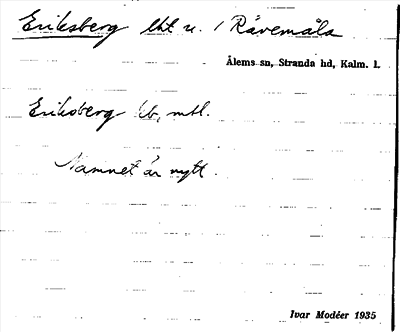 Eriksberg lht u. / Rävemåla
Ålems sn, Stranda hd, Kalm. l.
Eriksberg lb, mtl.
Namnet är nytt.
Ivar Modéer 1935